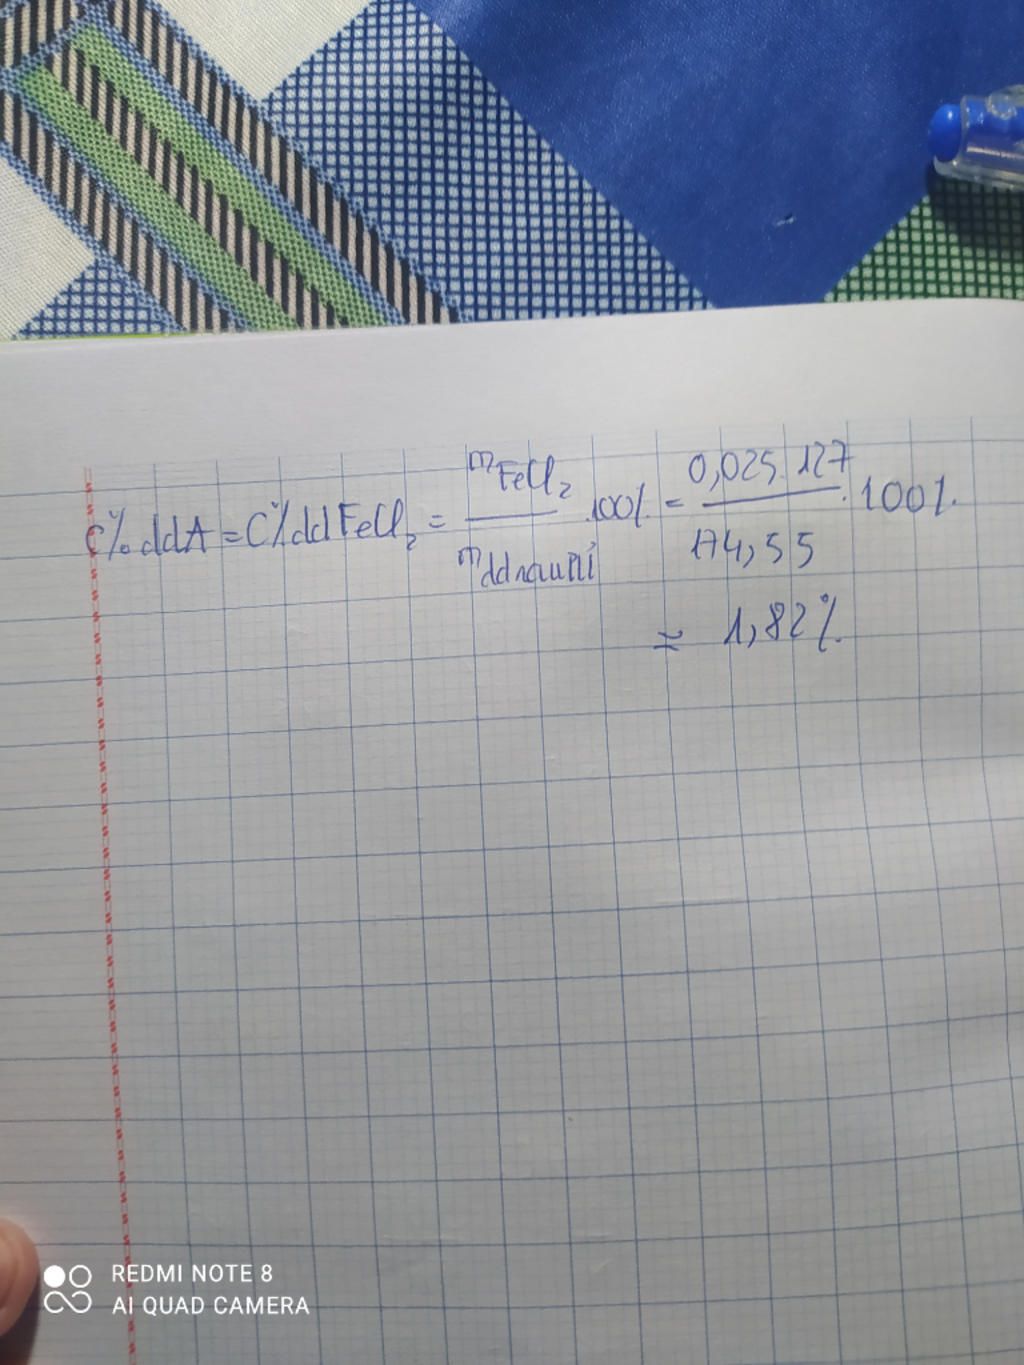 C% ddA = C% dd FeCl₂ = mFeCl₂ / mdd sau pứ . 100% = 0,025.127 / 174,55 . 100%
≈ 1,82%
REDMI NOTE 8
AI QUAD CAMERA